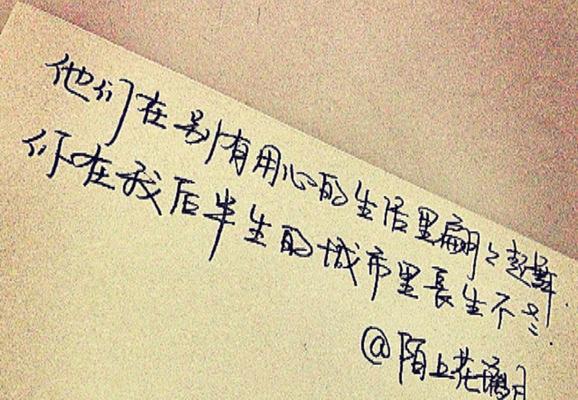 他们在别有用心的生活里翩々起舞.
你在我后半生的城市里長生不老.
@陌上花满月